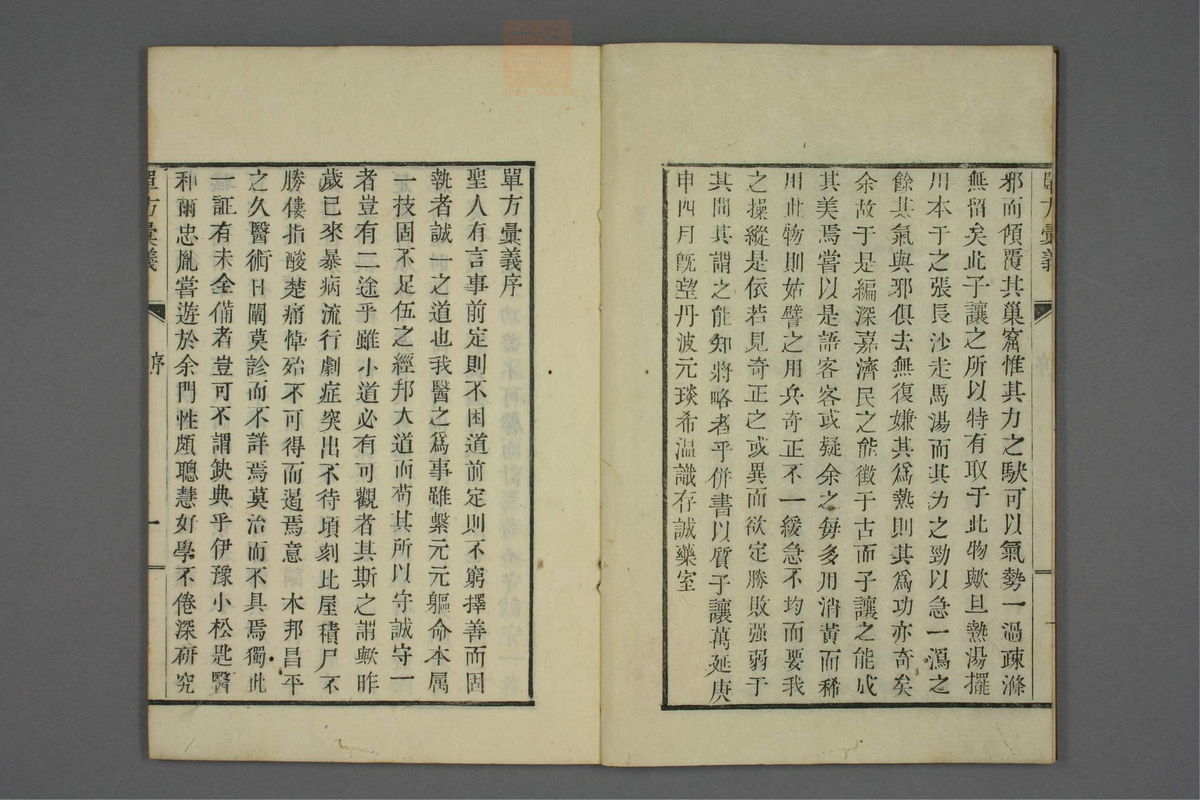 邪而傾覆其巢窟惟其力之駃可以氣勢一過疎滌
無留矣此子讓之所以特有取于此物歟且熱湯擺
用本于之張長沙走馬湯而其力之勁以急一瀉之
餘其氣與邪俱去無復嫌其爲熱則其爲功亦奇矣
余故于是編深嘉濟民之能徵于古而子讓之能成
其美焉嘗以是語客客或疑余之每多用消黃而稀
用此物則姑譬之用兵奇正不一緩急不均而要我
之操縱是依若見奇正之或異而欲定勝敗强弱于
其間其謂之能知將略者乎併書以質子讓萬延庚
申四月旣望丹波元琰希溫識存誠藥室
單方彙義
序
單方彙義序
聖人有言事前定則不困道前定則不窮擇善而固
執者誠一之道也我醫之爲事雖繫元元軀命本属
一技固不足伍之經邦大道而苟其所以守誠守一
者豈有二途乎雖小道必有可觀者其斯之謂歟昨
歲已來暴病流行劇症突出不待頃刻比屋積尸不
勝僂指酸楚痛悼殆不可得而遏焉意 本邦昌平
之久醫術日闡莫診而不詳焉莫治而不具焉獨此
一証有未全備者豈可不謂缺典乎伊豫小松匙醫
和爾忠胤嘗遊於余門性頗聰慧好學不倦深硏究
單方彙義
序
一